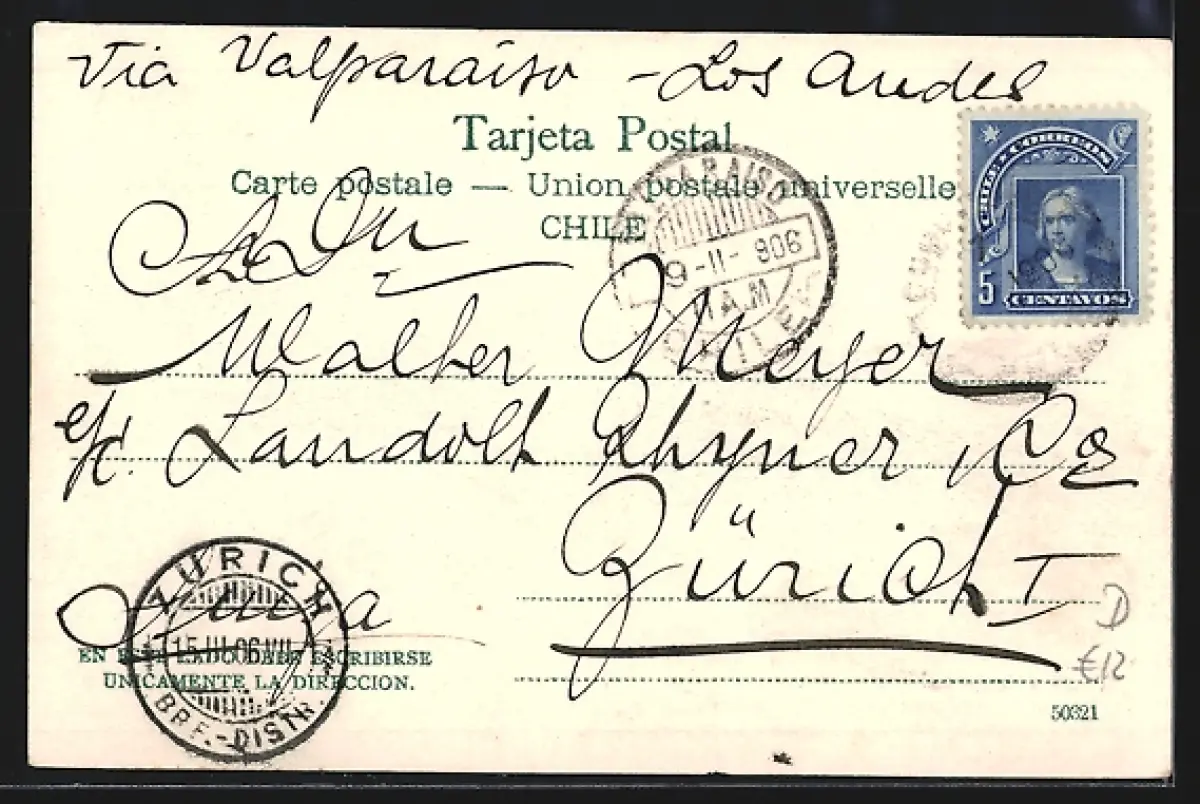 Via Valparaiso - Los Andes
Tarjeta Postal
Carte postale — Union postale universelle
CHILE
CHILE CORREOS
5
CENTAVOS
VALPARAISO
9-II-906
11 A.M
CHILE
Walter Meyer
c/o. Landolt Rhyner & Co
Zürich I
Suiza
ZÜRICH
15.III.06.VII
BRF.-DISTR.
EN ESTE LADO DEBE ESCRIBIRSE
UNICAMENTE LA DIRECCION.
D
€12
50321